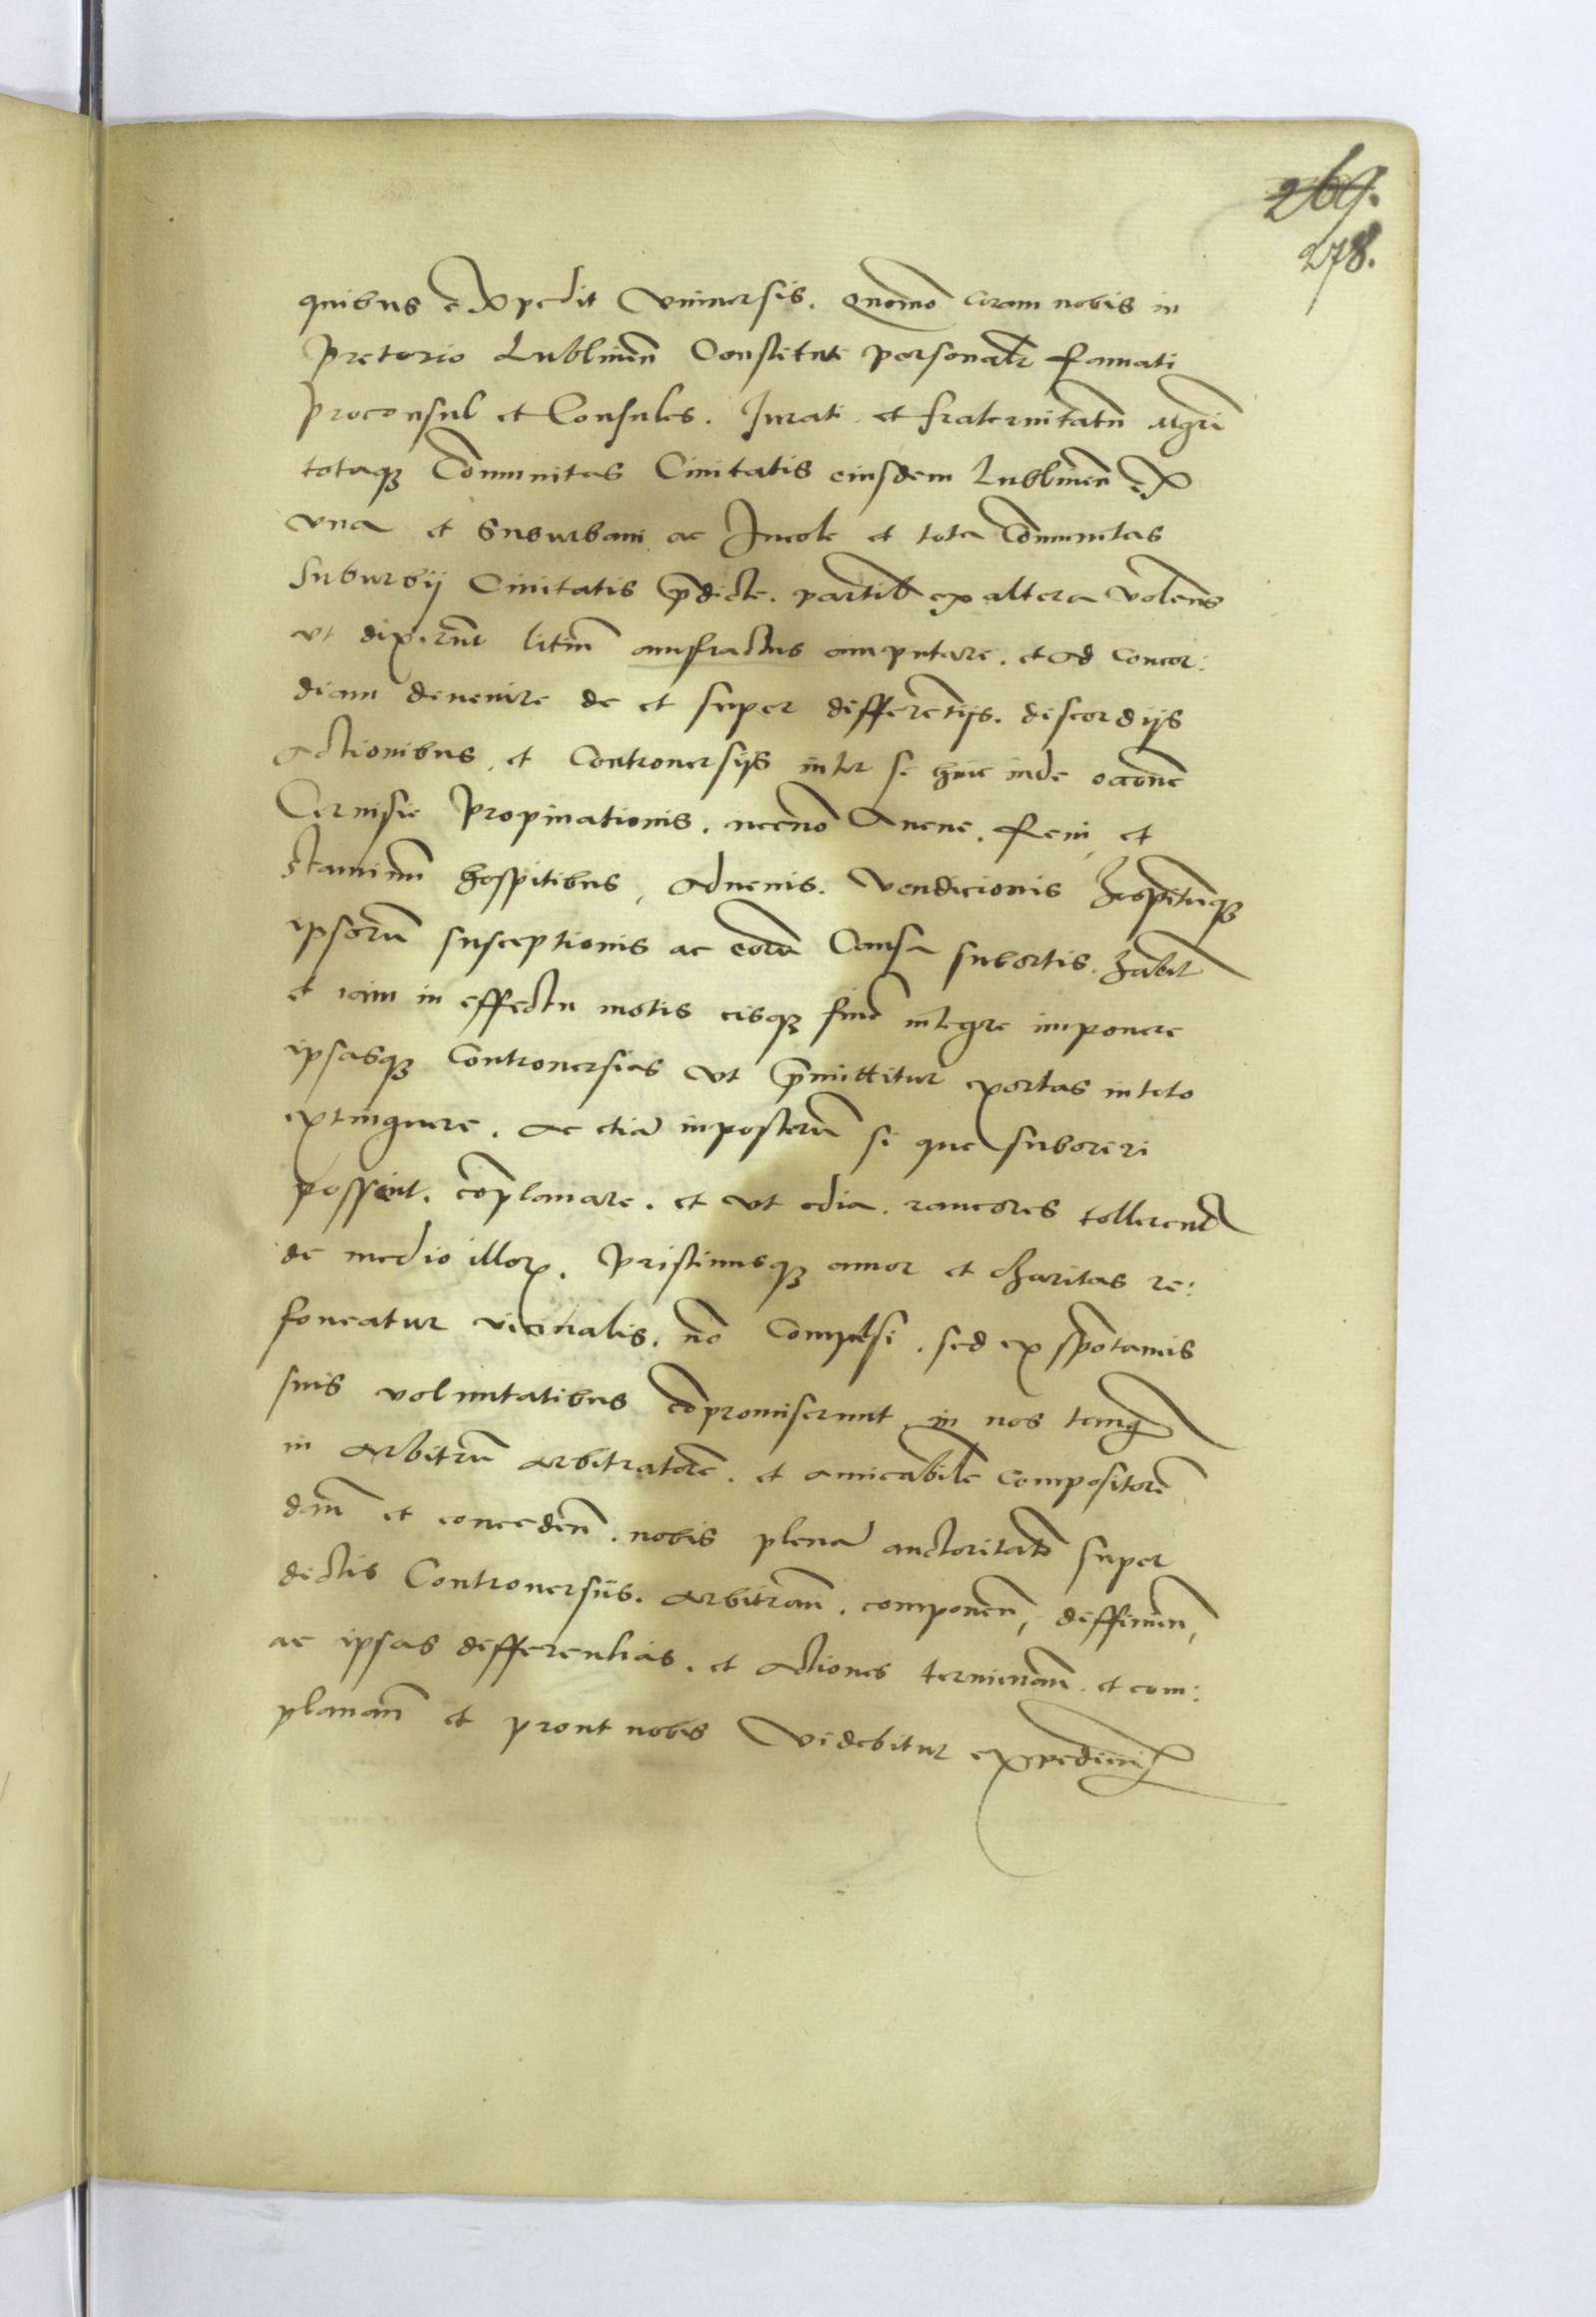 269.
278.
quibus expedit Vniuersis. Quomo coram nobis in
Pretorio Lublinen̄ Constituti personalr famati
Proconsul et Consules. Jurati et fraternitatū Mgri
totaqȝ Cōmunitas Ciuitatis eiusdem Lublinen̄ ex
vna et Suburbani ac Incole et tota Cōmunitas
Suburbij Ciuitatis p̄dicte. partib ex altera Volentes
vt dixerūt litiū amfractus amputare. et ad Concor:
diam deuenire de et super differētijs. discordijs
Actionibus, et Controuersijs inter se hinc inde occōne
Ceruisie Propinationis. necnō Auene. Feni, et
Straminū hospitibus, Aduenis. Vendicionis hospitūqȝ
ipsorū susceptionis ac eorū Causa subortis. habit
et iam in effectu motis eisqȝ finē integre imponere
ipsasqȝ Controuersias Vt p̄mittitur exortas in toto
extinguere. Ac etiā inposterū si que suboriri
possent. cōplanare. et Vt odia. rancores tollerent
de medio illorꝝ. Pristinusqȝ amor et charitas re:
foueatur vicinalis. nō Compulsi. sed ex spōtaneis
suis voluntatibus cōpromiserunt in nos tanq̄
in Arbitrū Arbitratorē. et amicabilē Compositorē
dan̄ et conceden̄. nobis plenā auctoritatē super
dictis Controuersiis. Arbitran̄. componen̄, deffinien̄,
ac ipsas differentias. et Actiones terminan̄. et com:
planan̄ et prout nobis Videbitur expedien̄